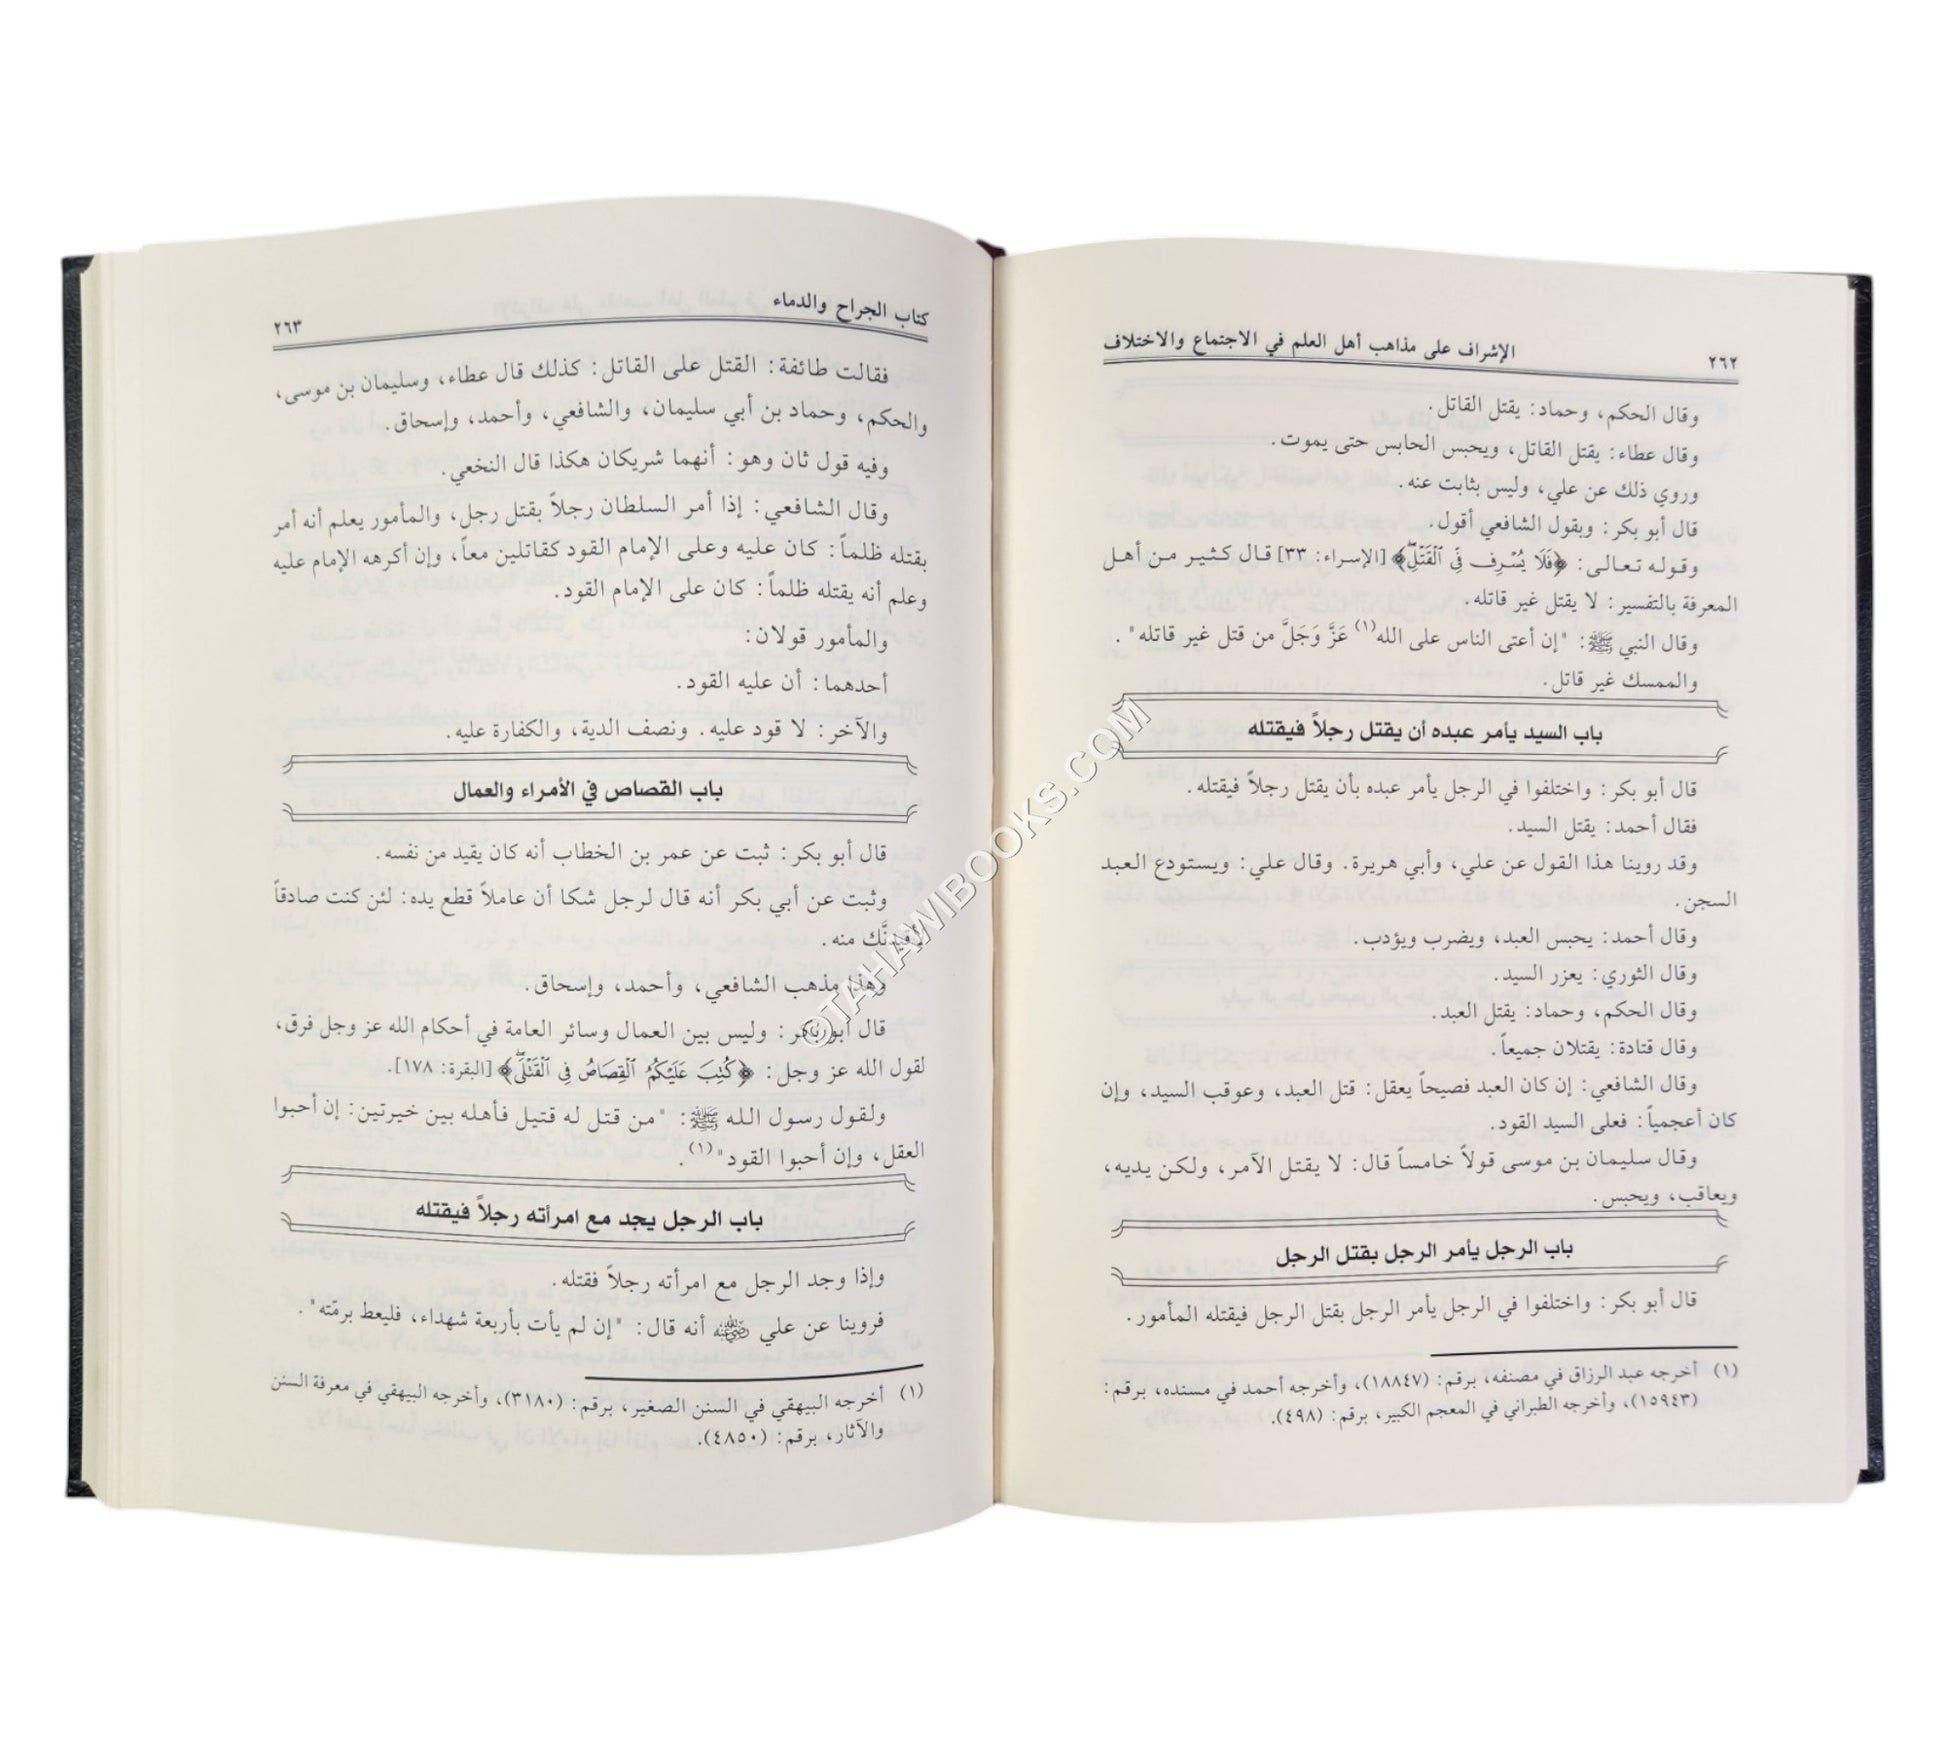 ٢٦٢
الإشراف على مذاهب أهل العلم في الاجتماع والاختلاف
وقال الحكم، وحماد: يقتل القاتل.
وقال عطاء: يقتل القاتل، ويحبس الحابس حتى يموت.
وروي ذلك عن علي، وليس بثابت عنه.
قال أبو بكر: وبقول الشافعي أقول.
وقوله تعالى: ﴿فَلَا يُسْرِف فِّي الْقَتْلِ﴾ [الإسراء: ٣٣] قال كثير من أهل
المعرفة بالتفسير: لا يقتل غير قاتله.
وقال النبي ﷺ: "إن أعتى الناس على الله(١) عَزَّ وَجَلَّ من قتل غير قاتله".
والممسك غير قاتل.
باب السيد يأمر عبده أن يقتل رجلاً فيقتله
قال أبو بكر: واختلفوا في الرجل يأمر عبده بأن يقتل رجلاً فيقتله.
فقال أحمد: يقتل السيد.
وقد روينا هذا القول عن علي، وأبي هريرة. وقال علي: ويستودع العبد
السجن.
وقال أحمد: يحبس العبد، ويضرب ويؤدب.
وقال الثوري: يعزر السيد.
وقال الحكم، وحماد: يقتل العبد.
وقال قتادة: يقتلان جميعاً.
وقال الشافعي: إن كان العبد فصيحاً يعقل: قتل العبد، وعوقب السيد، وإن
كان أعجمياً: فعلى السيد القود.
وقال سليمان بن موسى قولاً خامساً قال: لا يقتل الآمر، ولكن يديه،
ويعاقب، ويحبس.
باب الرجل يأمر الرجل بقتل الرجل
قال أبو بكر: واختلفوا في الرجل يأمر الرجل بقتل الرجل فيقتله المأمور.
(١) أخرجه عبد الرزاق في مصنفه، برقم: (١٨٨٤٧)، وأخرجه أحمد في مسنده، برقم:
(١٥٩٤٣)، وأخرجه الطبراني في المعجم الكبير، برقم: (٤٩٨).
كتاب الجراح والدماء
٢٦٣
فقالت طائفة: القتل على القاتل: كذلك قال عطاء، وسليمان بن موسى،
والحكم، وحماد بن أبي سليمان، والشافعي، وأحمد، وإسحاق.
وفيه قول ثان وهو: أنهما شريكان هكذا قال النخعي.
وقال الشافعي: إذا أمر السلطان رجلاً بقتل رجل، والمأمور يعلم أنه أمر
بقتله ظلماً: كان عليه وعلى الإمام القود كقاتلين معاً، وإن أكرهه الإمام عليه
وعلم أنه يقتله ظلماً: كان على الإمام القود.
والمأمور قولان:
أحدهما: أن عليه القود.
والآخر: لا قود عليه. ونصف الدية، والكفارة عليه.
باب القصاص في الأمراء والعمال
قال أبو بكر: ثبت عن عمر بن الخطاب أنه كان يقيد من نفسه.
وثبت عن أبي بكر أنه قال لرجل شكا أن عاملاً قطع يده: لئن كنت صادقاً
لأقيدنَّك منه.
وهذا مذهب الشافعي، وأحمد، وإسحاق.
قال أبو بكر: وليس بين العمال وسائر العامة في أحكام الله عز وجل فرق،
لقول الله عز وجل: ﴿كُتِبَ عَلَيْكُمُ الْقِصَاصُ فِي الْقَتْلَى﴾ [البقرة: ١٧٨].
ولقول رسول الله ﷺ: "من قتل له قتيل فأهله بين خيرتين: إن أحبوا
العقل، وإن أحبوا القود"(١).
باب الرجل يجد مع امرأته رجلاً فيقتله
وإذا وجد الرجل مع امرأته رجلاً فقتله.
فروينا عن علي رضي الله عنه أنه قال: "إن لم يأت بأربعة شهداء، فليعط برمّته".
(١) أخرجه البيهقي في السنن الصغير، برقم: (٣١٨٠)، وأخرجه البيهقي في معرفة السنن
والآثار، برقم: (٤٨٥٠).
©TAHAWIBOOKS.COM